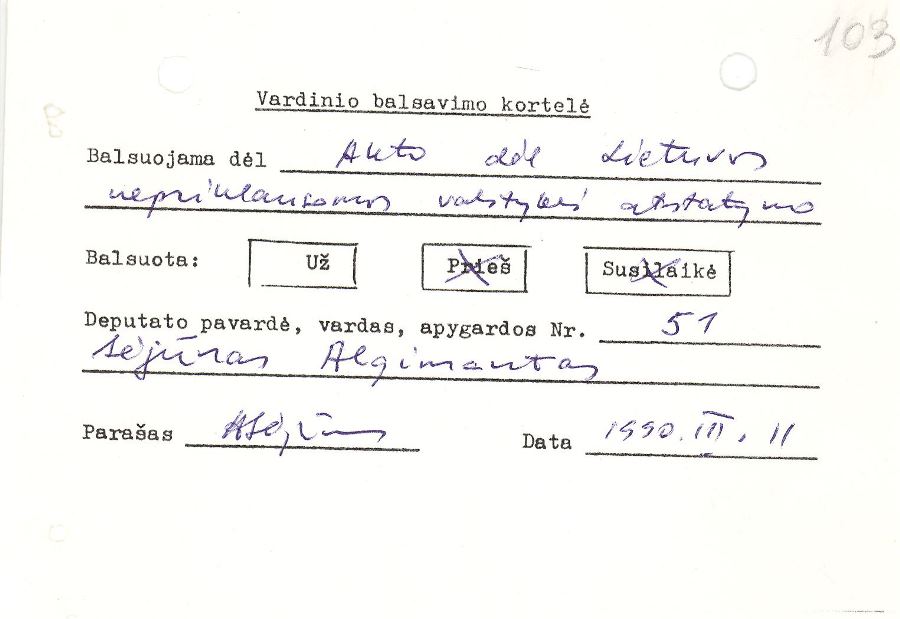 103
Vardinio balsavimo kortelė
Balsuojama dėl Akto dėl Lietuvos
nepriklausomos valstybės atstatymo
Balsuota: Už Prieš Susilaikė
Deputato pavardė, vardas, apygardos Nr. 51
Sėjūnas Algimantas
Parašas ASėjūnas Data 1990.III.11